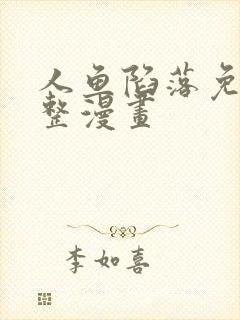 人鱼陷落免
整漫画
李如喜